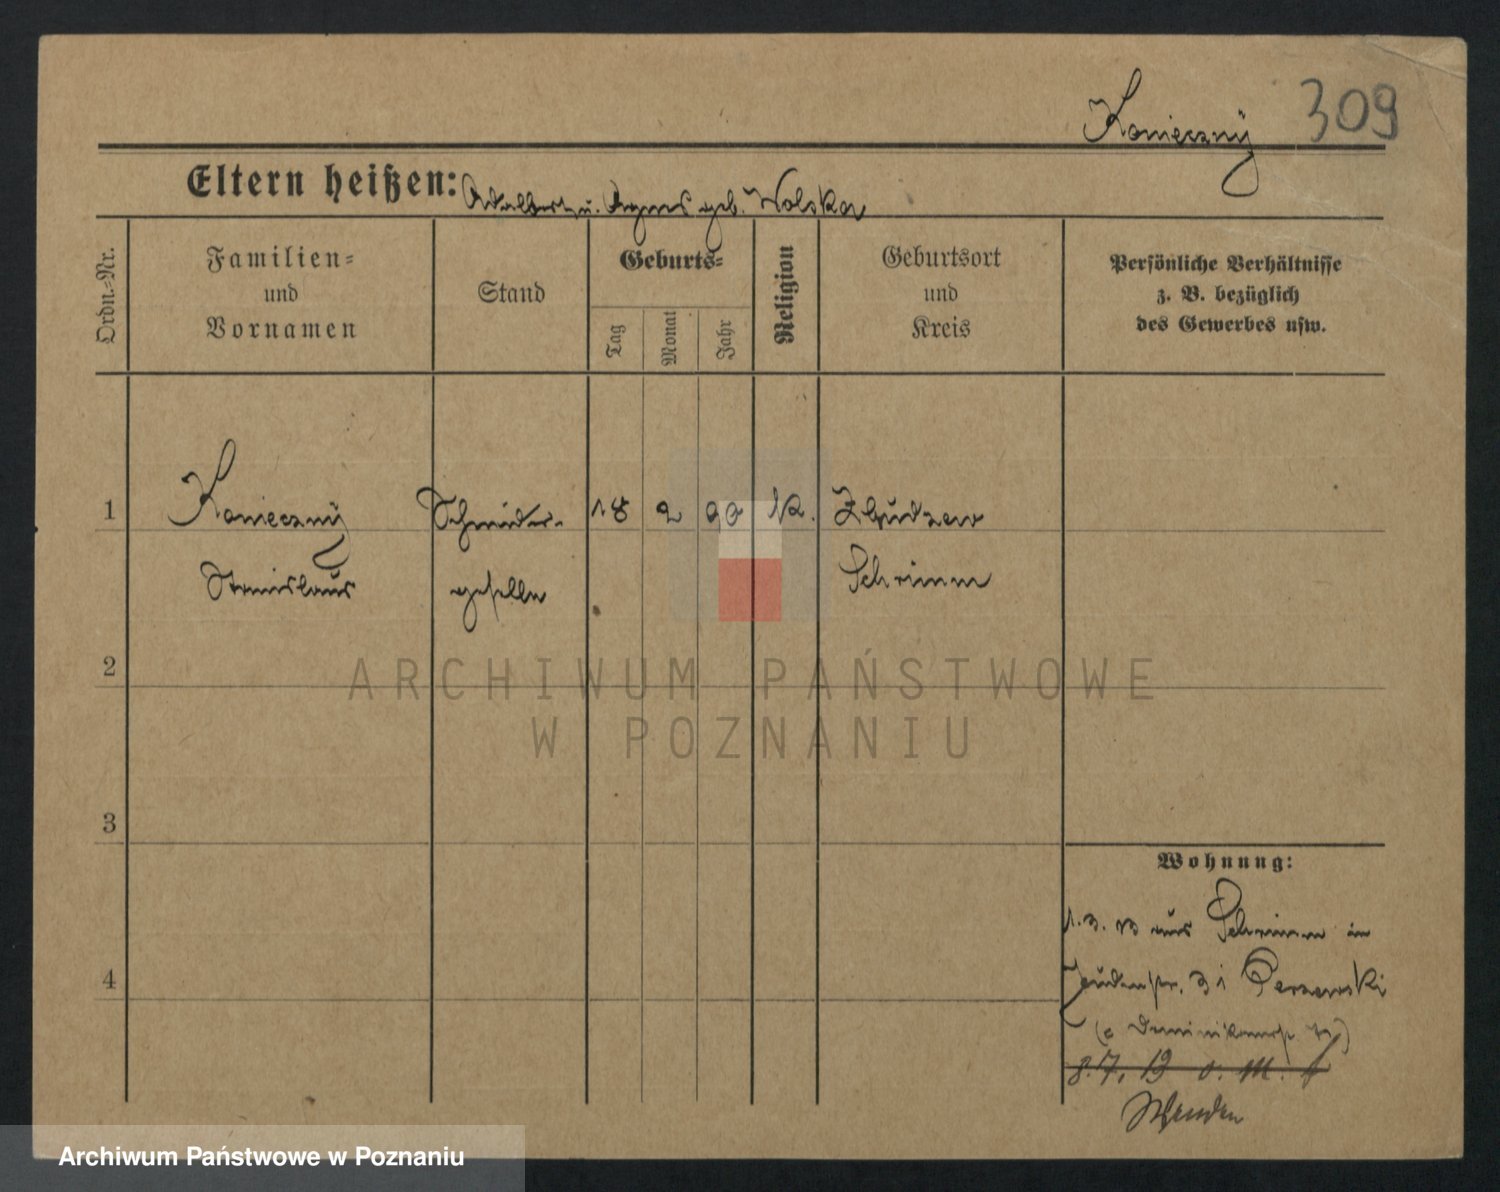 Konieczny 309
Eltern heißen: Adalbert u. Agnes geb. Wolska
Ordn.=Nr.
Familien=
und
Vornamen
Stand
Geburts=
Tag
Monat
Jahr
Religion
Geburtsort
und
Kreis
Persönliche Verhältnisse
z. B. bezüglich
des Gewerbes usw.
1 Konieczny Schneider- 18 2 90 k.
Stanislaus geselle Schrimm
2
ARCHIWUM PAŃSTWOWE
W POZNANIU
3
Wohnung:
1.3.13 aus Schrimm in
4 Judenstr. 31
8.7.13
Wenden
Archiwum Państwowe w Poznaniu